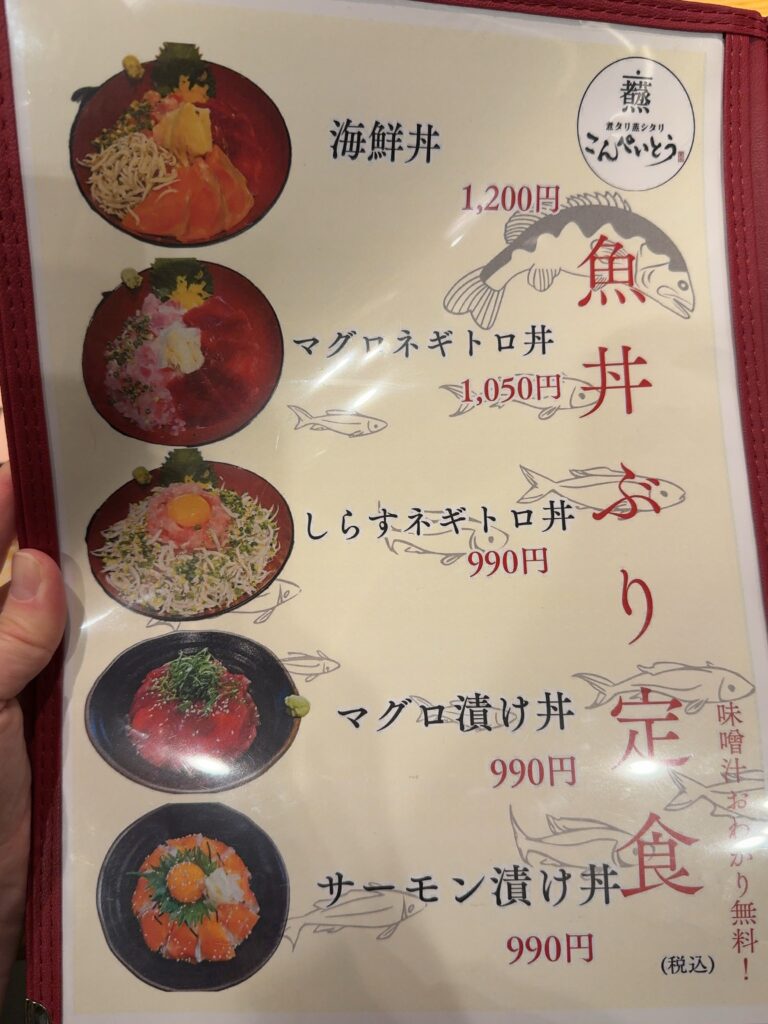 煮タリ蒸シタリ
こんぺいとう
魚丼ぶり定食
味噌汁おわかり無料！
海鮮丼
1,200円
マグロネギトロ丼
1,050円
しらすネギトロ丼
990円
マグロ漬け丼
990円
サーモン漬け丼
990円
(税込)